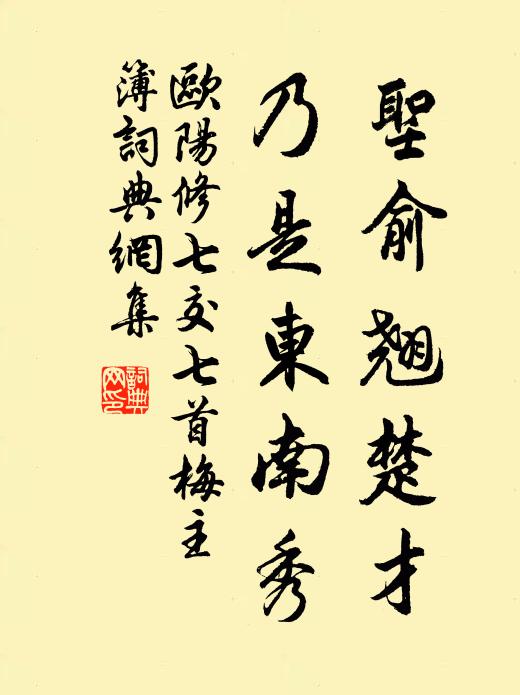 聖俞翹楚才
乃是東南秀
歐陽修七交七首梅主
簿詞典網集
詞典网印